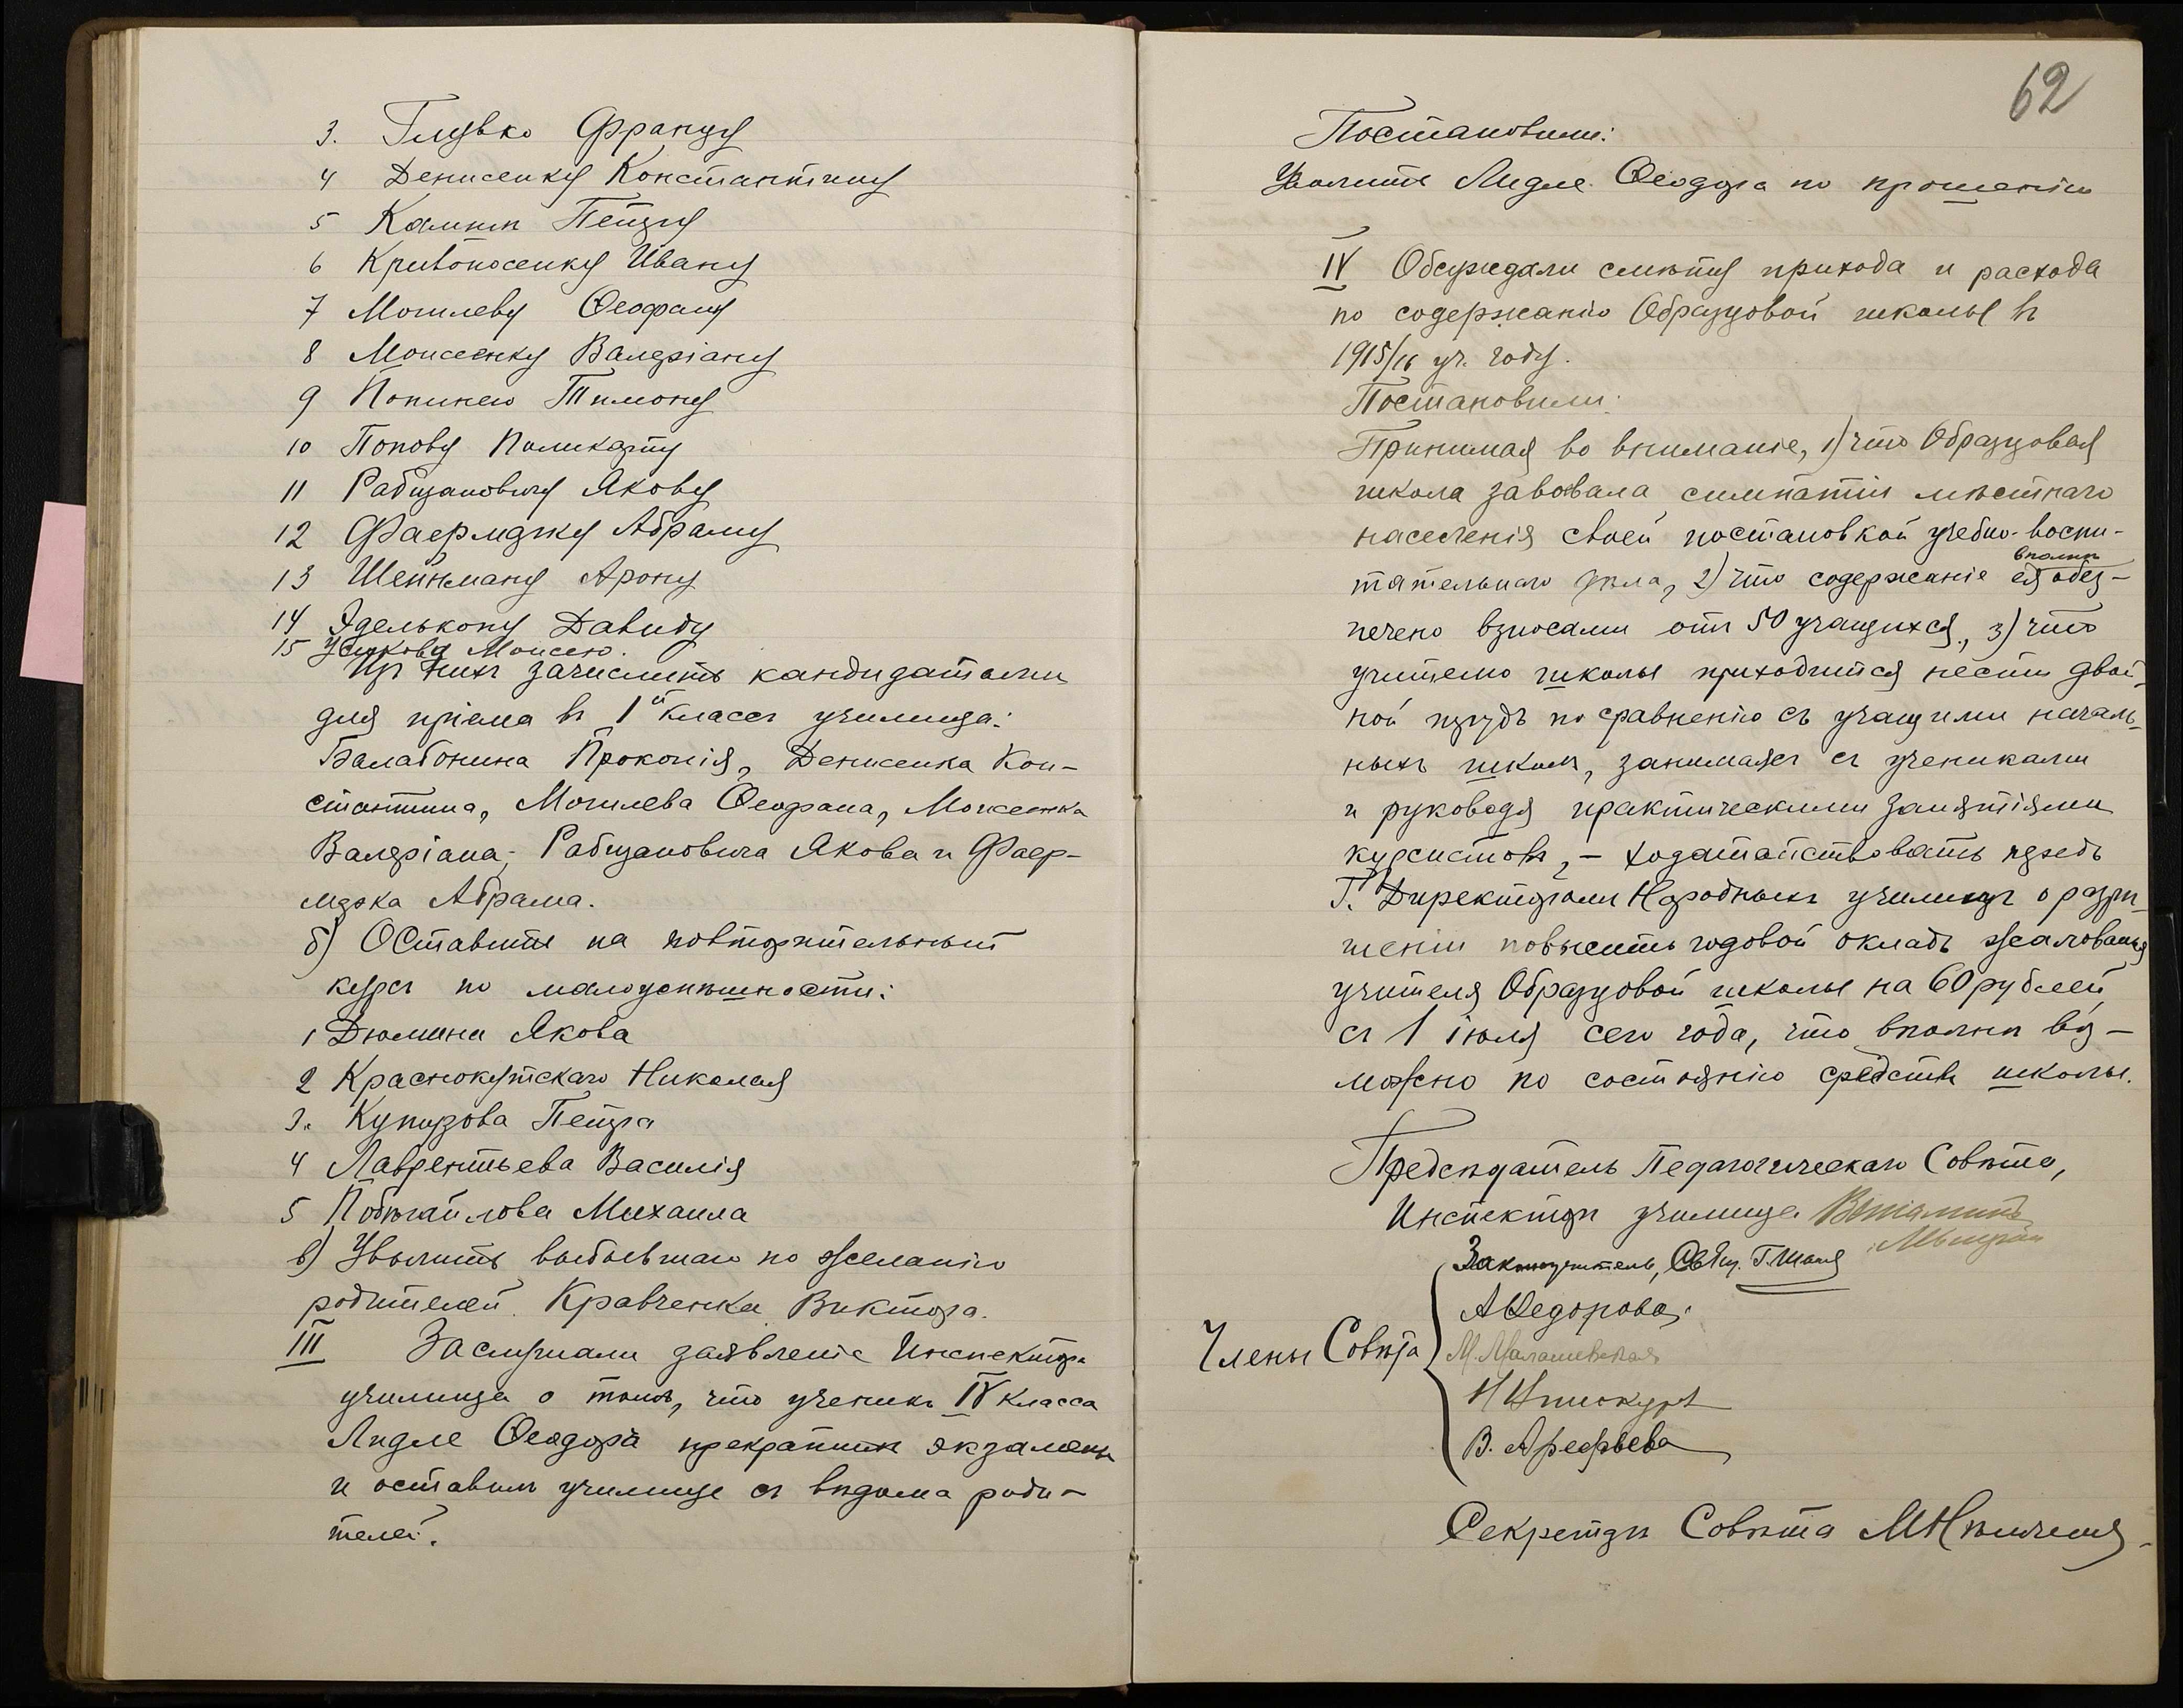 3. Глувко Францу
4 Денисенку Константину
5 Калинъ Петру
6 Кривоносенку Ивану
7 Могилеву Ѳеофану
8 Моисеенку Валеріану
9 Тимону
10 Попову Поликарпу
11 Рабиновичу Якову
12 Фаермарку Абраму
13 Шейнману Арону
14 Эделькопу Давиду
15 Моисею.
Изъ нихъ зачислить кандидатами
для пріема въ 1й классъ училища:
Балабонина Прокопія, Денисенка Кон-
стантина, Могилева Ѳеофана, Моисеенка
Валеріана, Рабиновича Якова и Фаер-
марка Абрама.
б) Оставить на повторительный
курсъ по малоуспѣшности:
1 Дюмина Якова
2 Краснокутскаго Николая
3. Петра
4 Лаврентьева Василія
5 Михаила
в) Уволить выбывшаго по желанію
родителей Кравченка Виктора.
III Заслушали заявленіе Инспектора
училища о томъ, что ученикъ IV класса
Лидле Ѳеодоръ прекратилъ экзамены
и оставилъ училище съ вѣдома роди-
телей.
62
Постановили:
Уволить Лидле Ѳеодора по прошенію
IV Обсуждали смѣту прихода и расхода
по содержанію Образцовой школы въ
1915/16 уч. году.
Постановили:
Принимая во вниманіе, 1) что Образцовая
школа завоевала симпатіи мѣстнаго
населенія своей постановкой учебно-воспи-
тательнаго дѣла, 2) что содержаніе ея вполнѣ обез-
печено взносами отъ 50 учащихся, 3) что
учителю школы приходится нести двой-
ной трудъ по сравненію съ учащими началь-
ныхъ школъ, занимаясь съ учениками
и руководя практическими занятіями
курсистовъ, - ходатайствовать предъ
Г. Директоромъ Народныхъ училищъ о разрѣ-
шеніи повысить годовой окладъ жалованья
учителя Образцовой школы на 60 рублей
съ 1 іюля сего года, что вполнѣ воз-
можно по состоянію средствъ школы.
Предсѣдатель Педагогическаго Совѣта,
Инспекторъ училища
Законоучитель, Свящ.
Члены Совѣта
А Ѳедорова.
М. Малашевская
В. Арефьева
Секретарь Совѣта